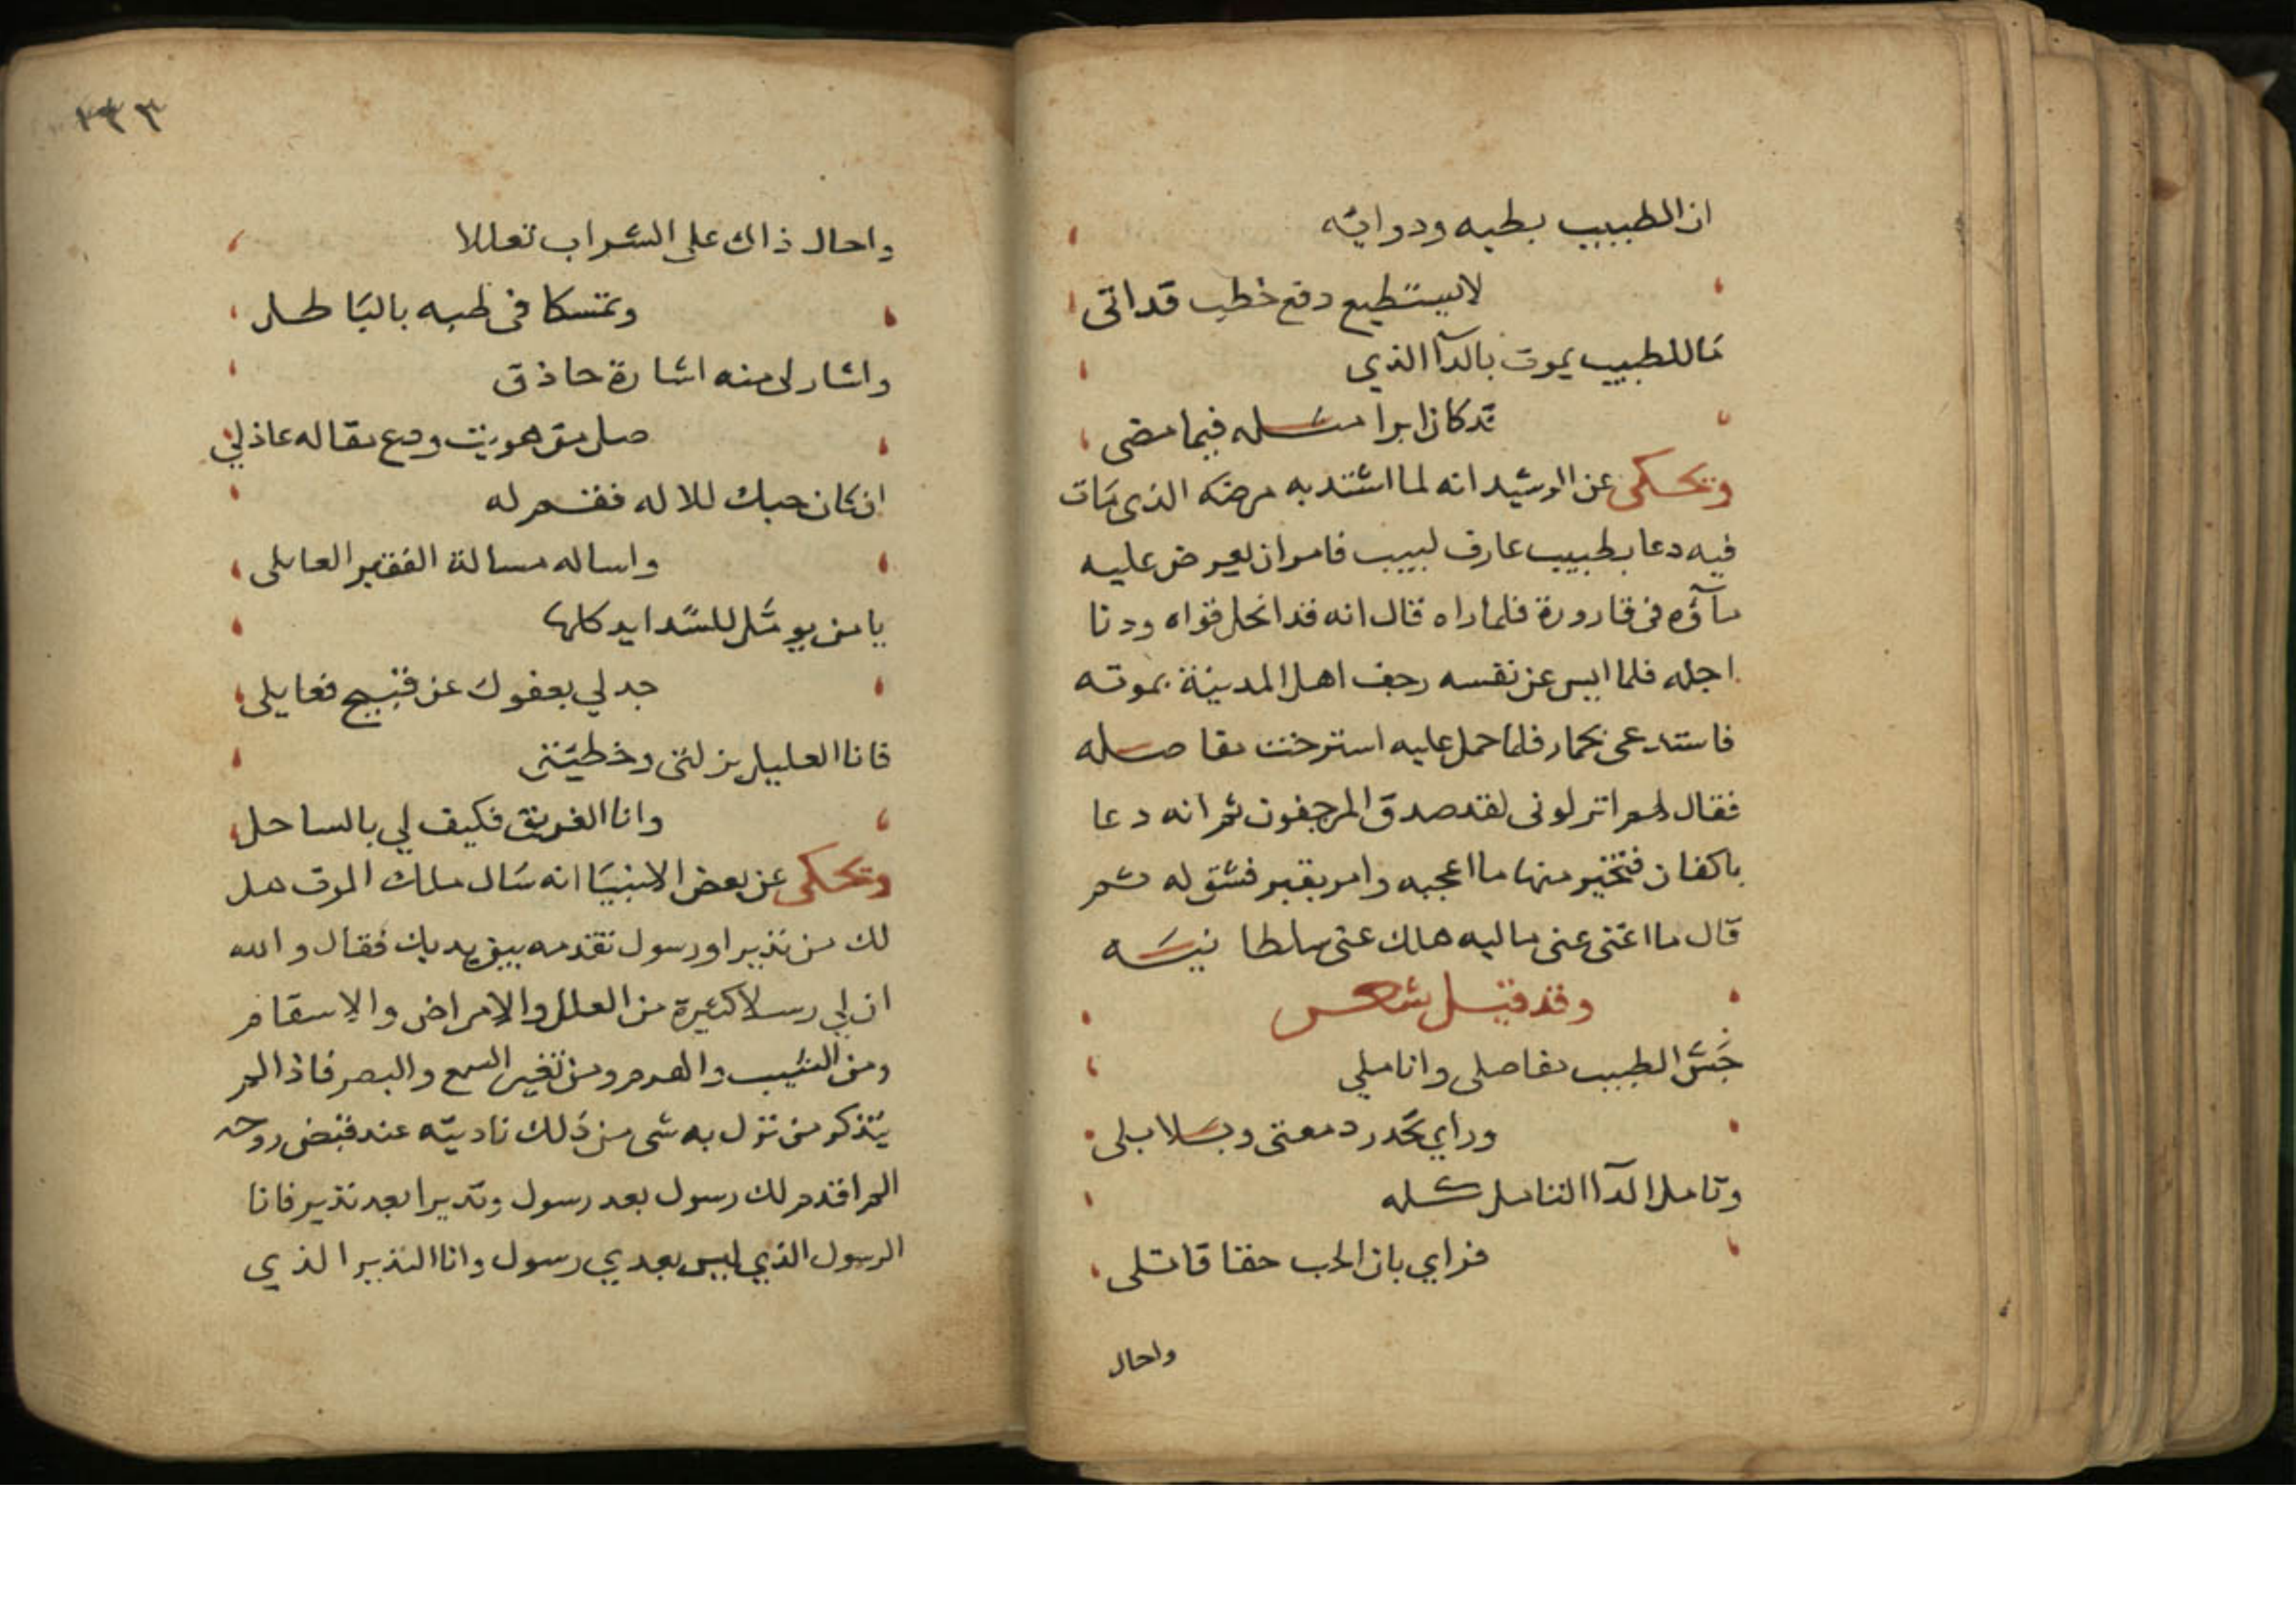 ان الطبيب بطبه ودوايه
لايستطيع دفع خطب قد اتى
ما للطبيب يموت بالدآ الذي
قد كان ابرا مثله فيما مضى
ويحكى عن الرشيد انه لما اشتد به مرضه الذى مات
فيه دعا بطبيب عارف لبيب فامر ان يعرض عليه
مآؤه فى قارورة فلما راه قال انه قد انحل قواه ودنا
اجله فلما ايس عن نفسه رجف اهل المدينة بموته
فاستدعى بحمار فلما حمل عليه استرخت مفاصله
فقال لهم انزلونى لقد صدق المرجفون ثم انه دعا
باكفان فتخير منها ما اعجبه وامر بقبر فشق له ثم
قال ما اغنى عنى ماليه هلك عنى سلطانيه
وقد قيل شعر
جس الطبيب مفاصلى واناملي
وراي تحدر دمعتى وبلابلى
وتامل الدآ التامل كله
فراي بان الحب حقا قاتلى
واحال
١٣٣
واحال ذاك على الشراب تعللا
وتمسكا فى طبه بالباطل
واشار لى منه اشارة حاذق
صل من هويت ودع مقاله عاذلي
ان كان حبك للاله فقم له
واساله مسالة الفقير العايلى
يا من يومل للشدايد كلها
جد لي بعفوك عن قبيح فعايلى
فانا العليل بزلتى وخطيتى
وانا الغريق فكيف لي بالساحل
ويحكى عن بعض الانبيا انه سال ملك الموت هل
لك من نذير او رسول تقدمه بين يديك فقال والله
ان لي رسلا كثيرة من العلل والامراض والاسقام
ومن الشيب والهرم ومن تغير السمع والبصر فاذا لم
يتذكر من نزل به شى من ذلك ناديته عند قبض روحه
الم اقدم لك رسول بعد رسول ونذيرا بعد نذير فانا
الرسول الذي ليس بعدي رسول وانا النذير الذي